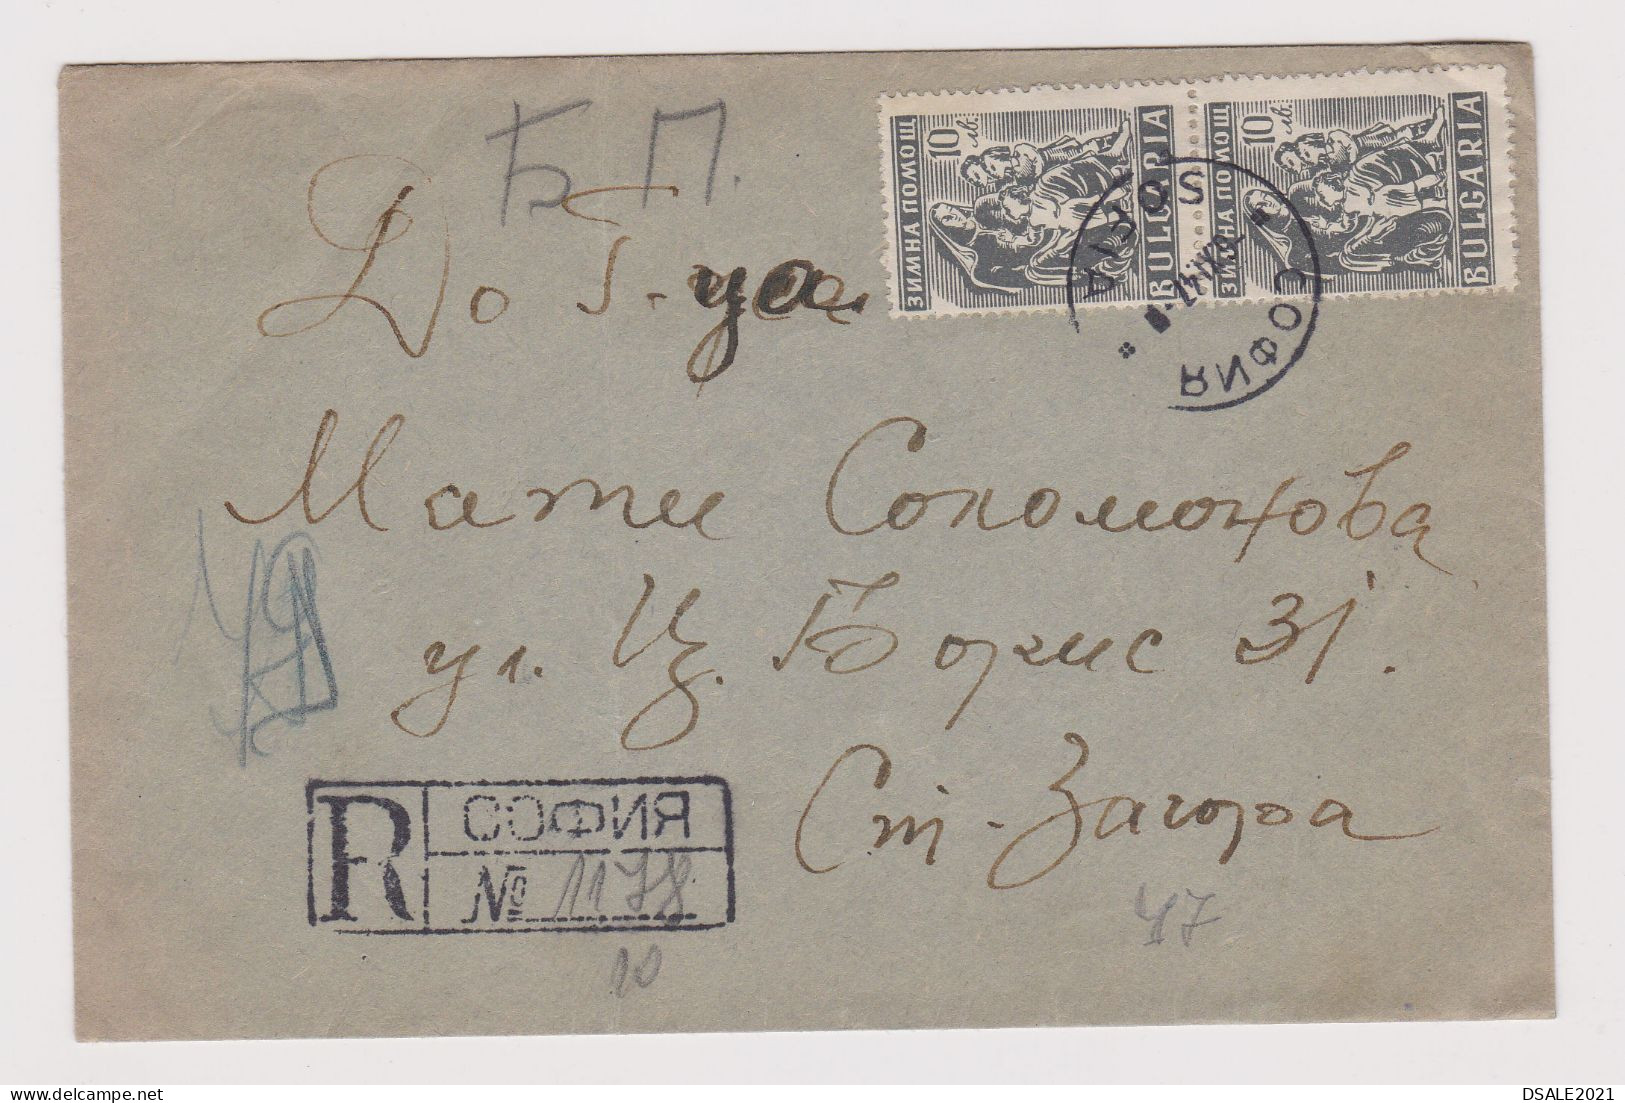 Б П.
ЗИМНА ПОМОЩ 10 лв. BULGARIA
ЗИМНА ПОМОЩ 10 лв. BULGARIA
SOFIA
СОФИЯ
До Г-ца
Мати Соломонова
ул. Ц. Борис 31.
Ст. Загора
R СОФИЯ
№ 1178
10
47
DSALE2021